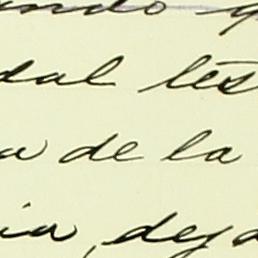 ando y
dal les
a de la
ia, deja